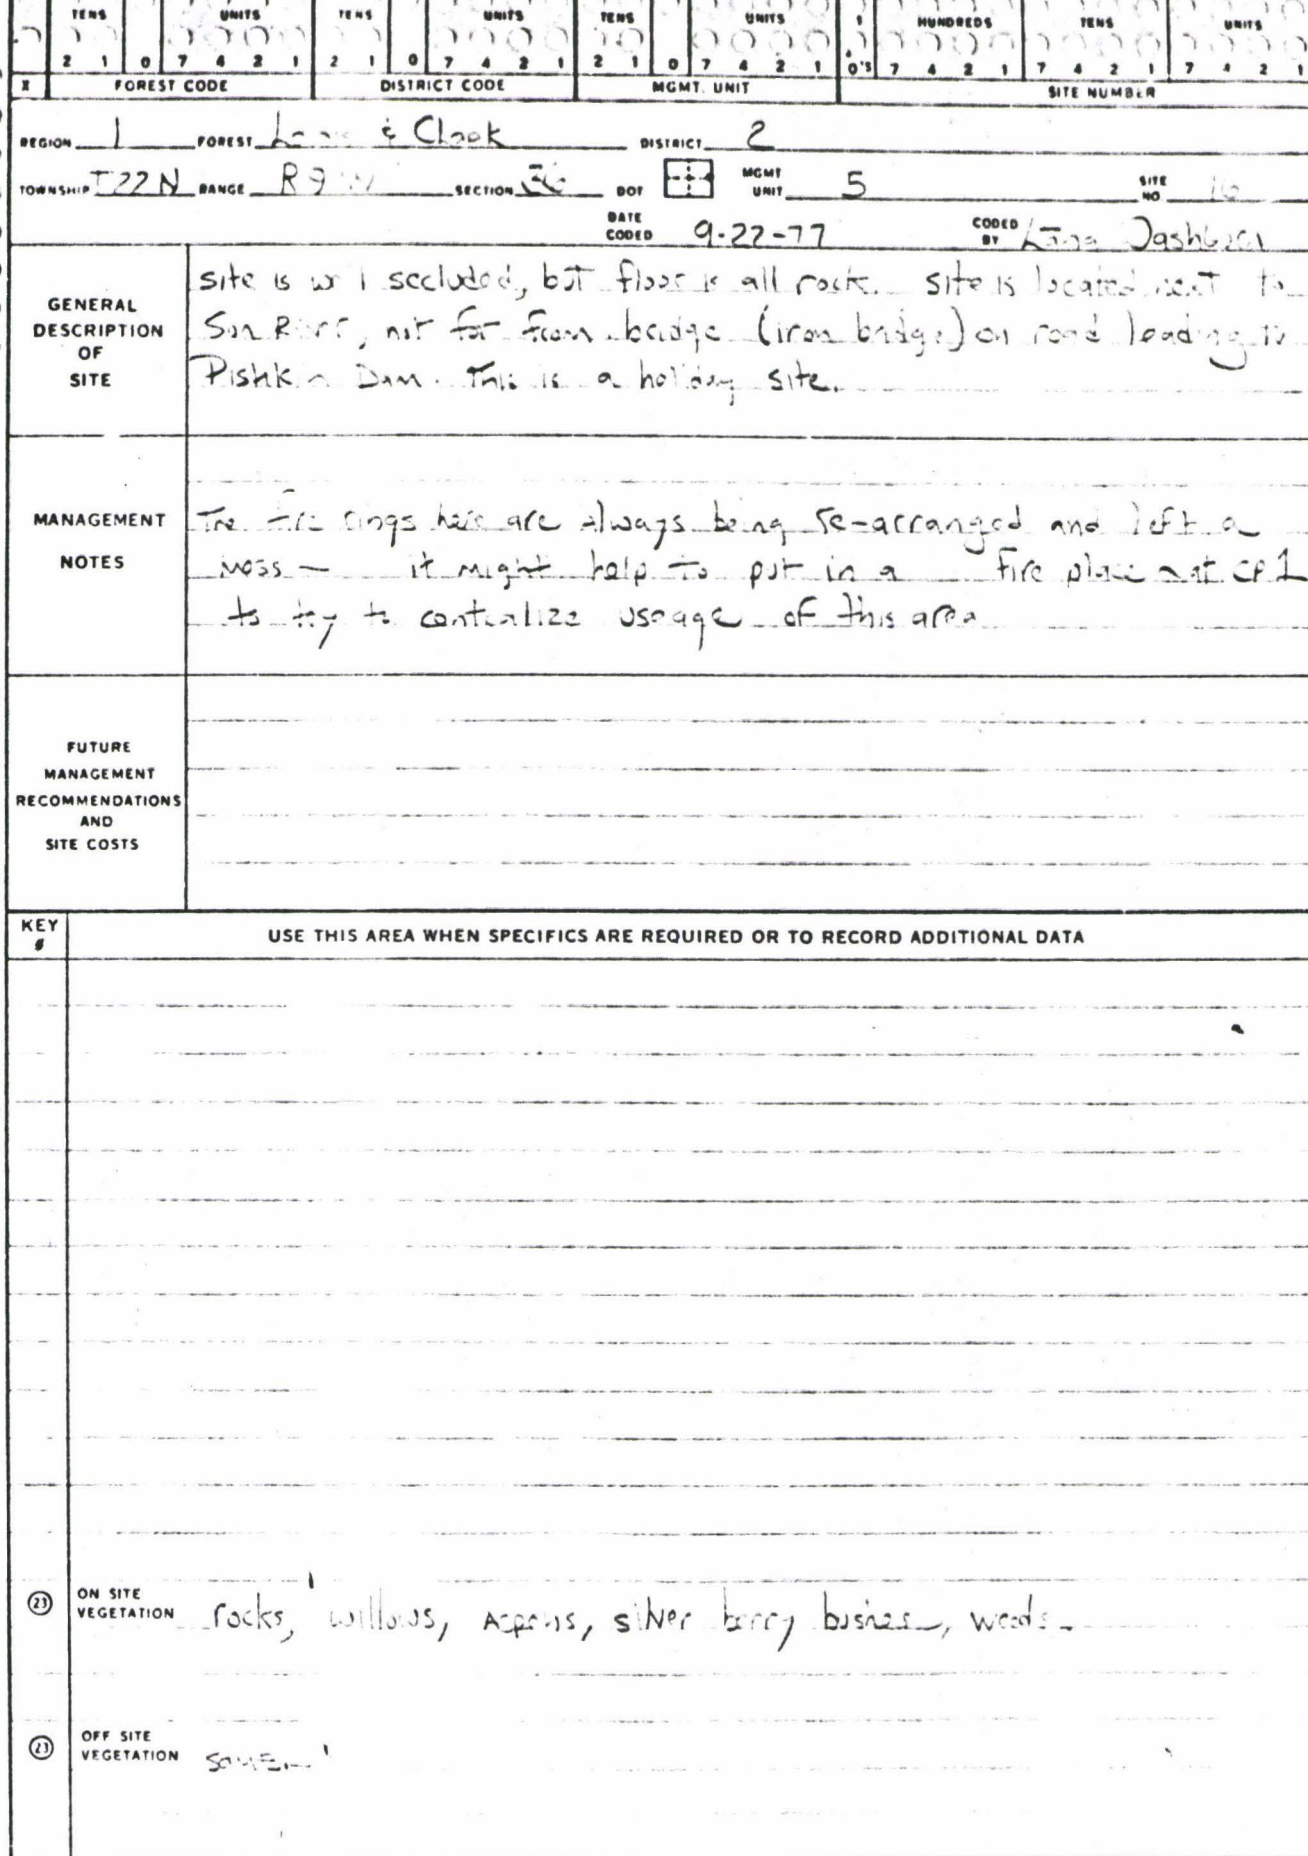 TENS UNITS TENS UNITS TENS UNITS 1 HUNDREDS TENS UNITS
2 1 0 7 4 2 1 2 1 0 7 4 2 1 2 1 0 7 4 2 1 0'S 7 4 2 1 7 4 2 1 7 4 2 1
X FOREST CODE DISTRICT CODE MGMT. UNIT SITE NUMBER
REGION 1 FOREST & Clark DISTRICT 2
TOWNSHIP T22N RANGE R9W SECTION 36 DOT MGMT UNIT 5 SITE NO 16
DATE CODED 9-22-77 CODED BY
GENERAL DESCRIPTION OF SITE
site is well secluded, but floor is all rock. site is located next to
Sun River, not far from bridge (iron bridge) on road leading to
Pishkin Dam. This is a holiday site.
MANAGEMENT NOTES
The fire rings here are always being re-arranged and left a
mess - it might help to put in a fire place at CP1
to try to centralize useage of this area
FUTURE MANAGEMENT RECOMMENDATIONS AND SITE COSTS
KEY # USE THIS AREA WHEN SPECIFICS ARE REQUIRED OR TO RECORD ADDITIONAL DATA
23 ON SITE VEGETATION rocks, willows, Aspens, silver berry bushes, weeds.
23 OFF SITE VEGETATION same